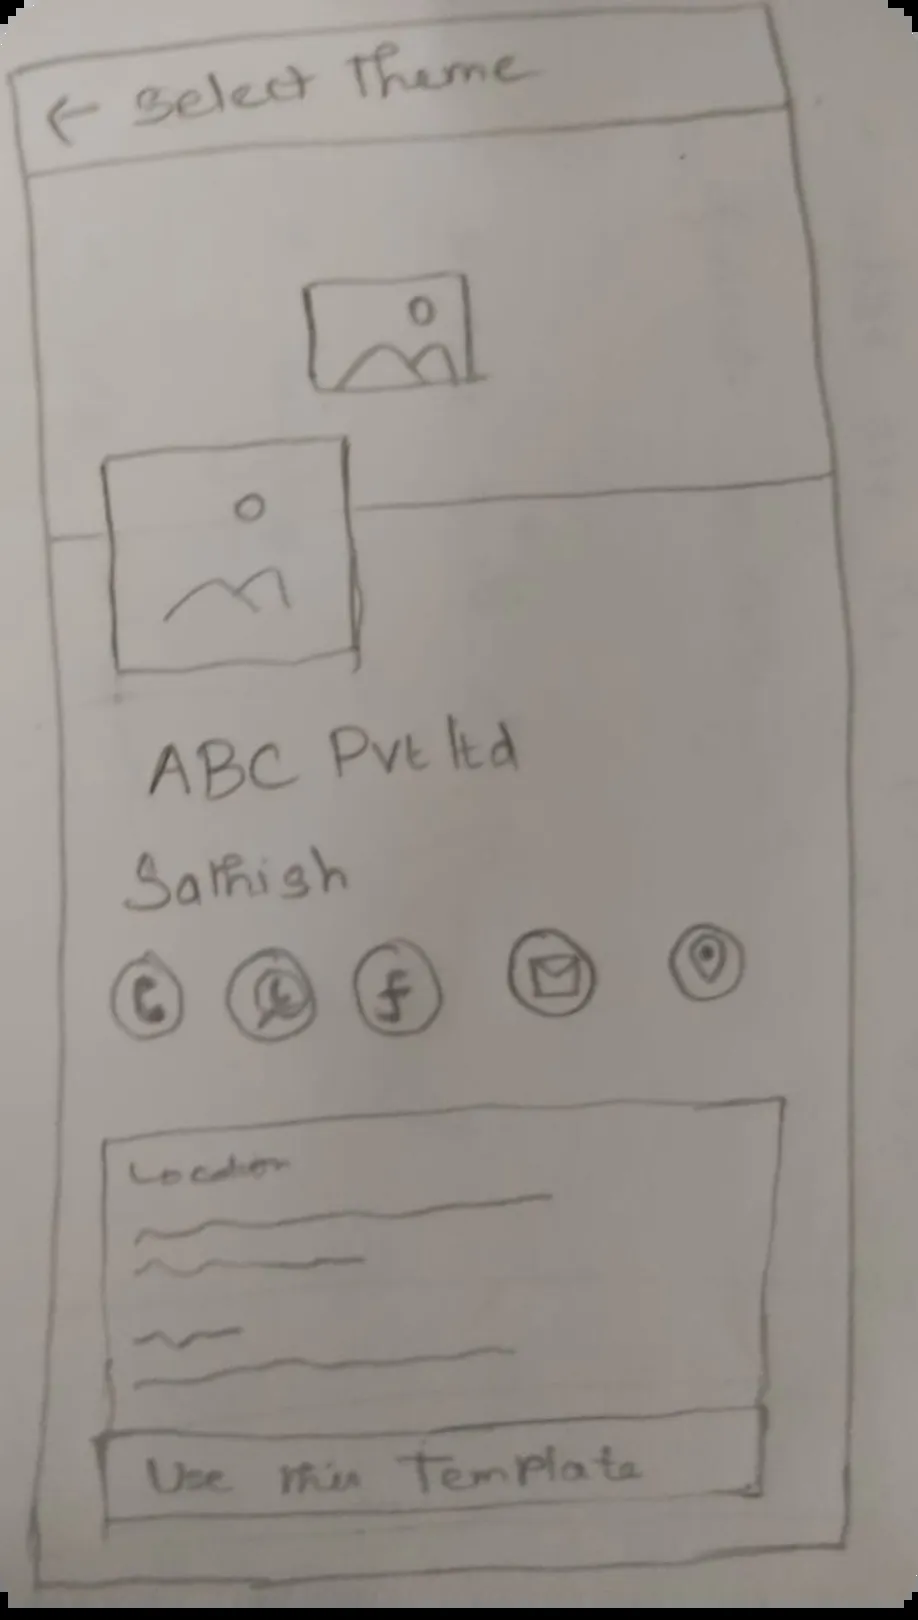 ← Select Theme
ABC Pvt ltd
Sathish
f
Location
Use this Template